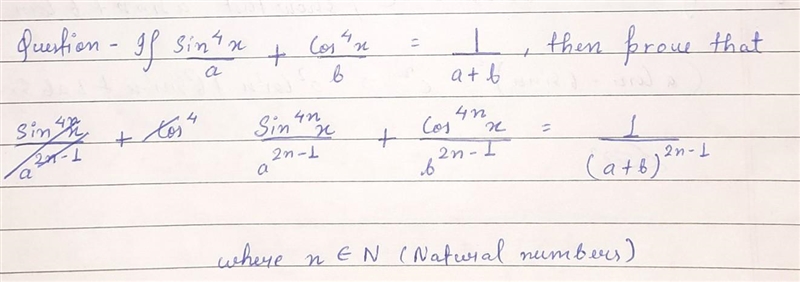 Question - If sin⁴x/a + cos⁴x/b = 1/(a+b), then prove that
sin⁴ⁿx/a²ⁿ⁻¹ + cos⁴ sin⁴ⁿx/a²ⁿ⁻¹ + cos⁴ⁿx/b²ⁿ⁻¹ = 1/(a+b)²ⁿ⁻¹
where n ∈ N (Natural numbers)